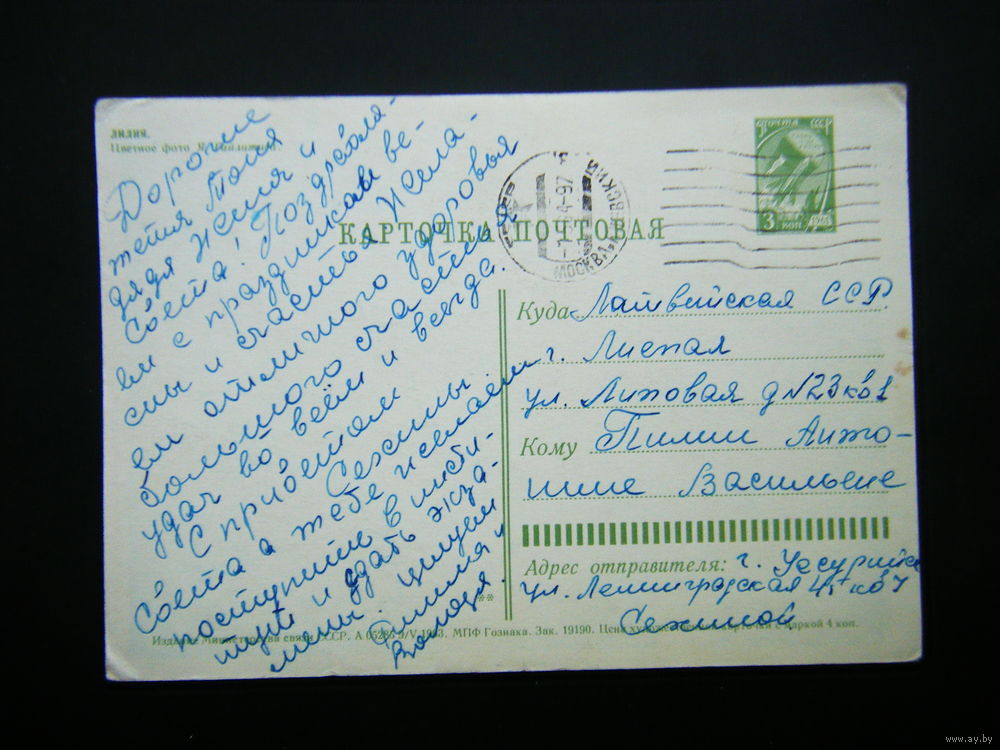 ЛИЛИЯ.
Цветное фото
Дорогие
тетя Тоня
дядя Женя и
Света! Поздравля-
ем с праздником ве-
сны и счастья Жела-
ем отличного здоровья
большого счастья
удач во всём и всегда.
С приветом
Сехины.
Света а тебе желаем
поступить в инсти-
тут и сдать экза-
мены. целуем
Римма и
Володя.
КАРТОЧКА ПОЧТОВАЯ
ПОЧТА СССР
3 коп
1961
МОСКВА
Куда Латвийская ССР
г. Лиепая
ул. Липовая д №23 кв 1
Кому Пилии Анто-
нине Васильевне
Адрес отправителя: г. Уссурийск
ул. Ленинградская 45 кв 7
Сехиной
**
Издание Министерства связи СССР. А 05285 9/V 1963. МПФ Гознака. Зак. 19190. Цена художественной карточки с маркой 4 коп.
www.ay.by